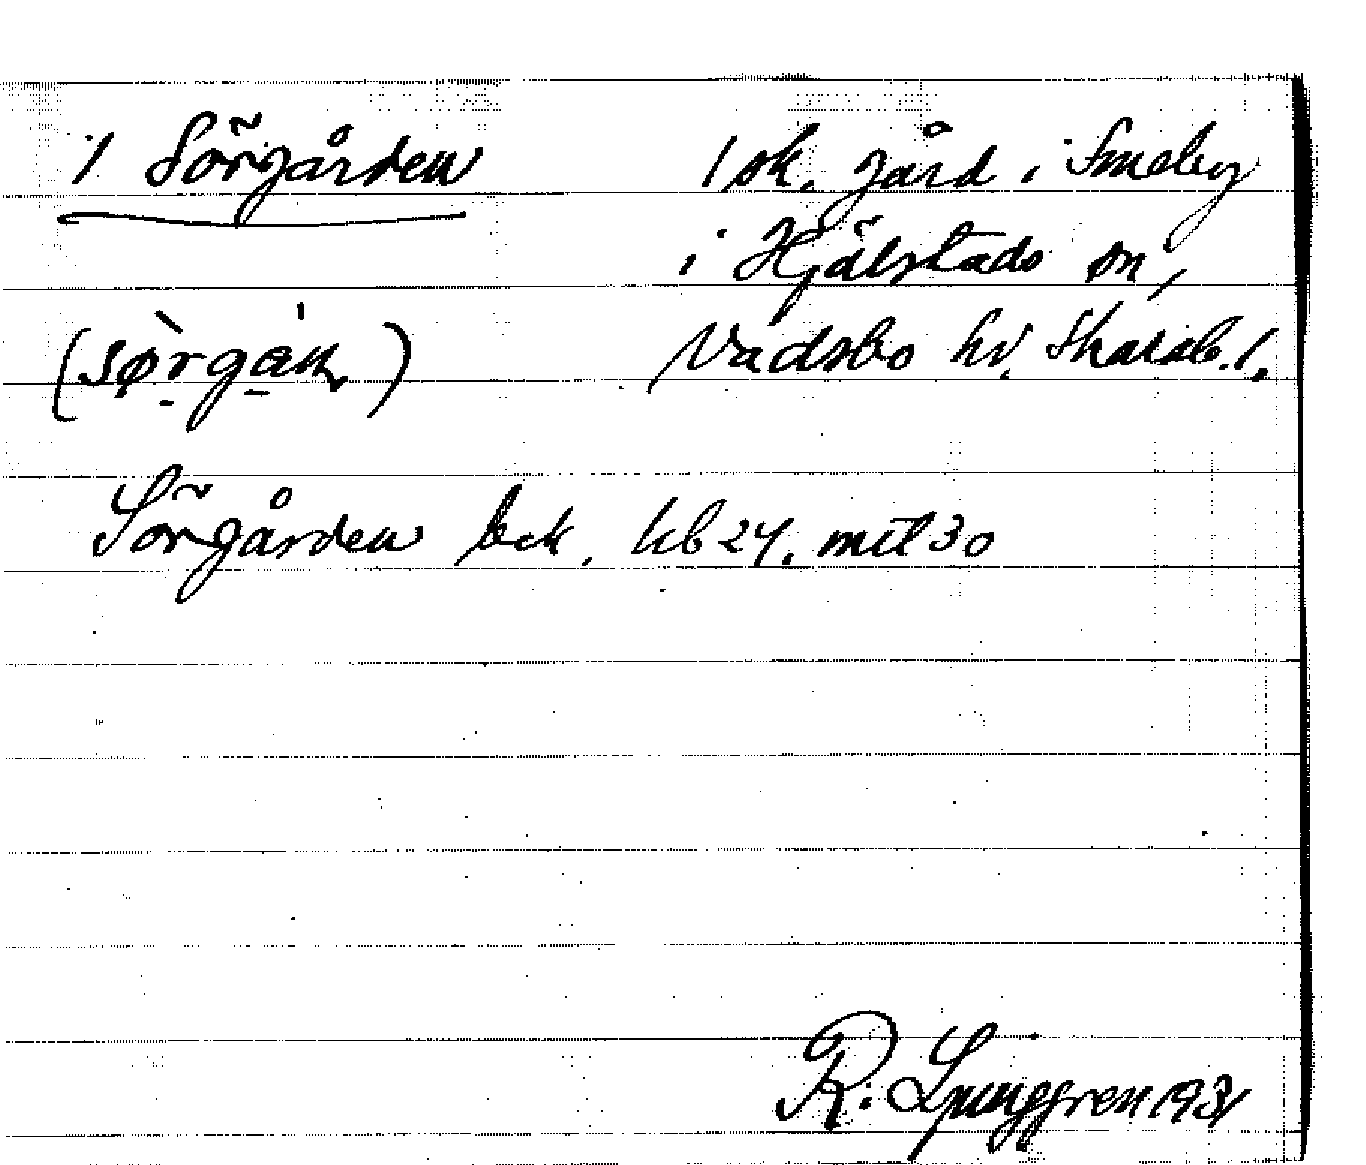 1 Sörgården 1 sk. gård i Smeby
i Hjälstads sn,
(sørgán) Vadsbo hd. Skarab. l.
Sörgården bek. hb 24. mtl 30
R. Ljunggren 1931